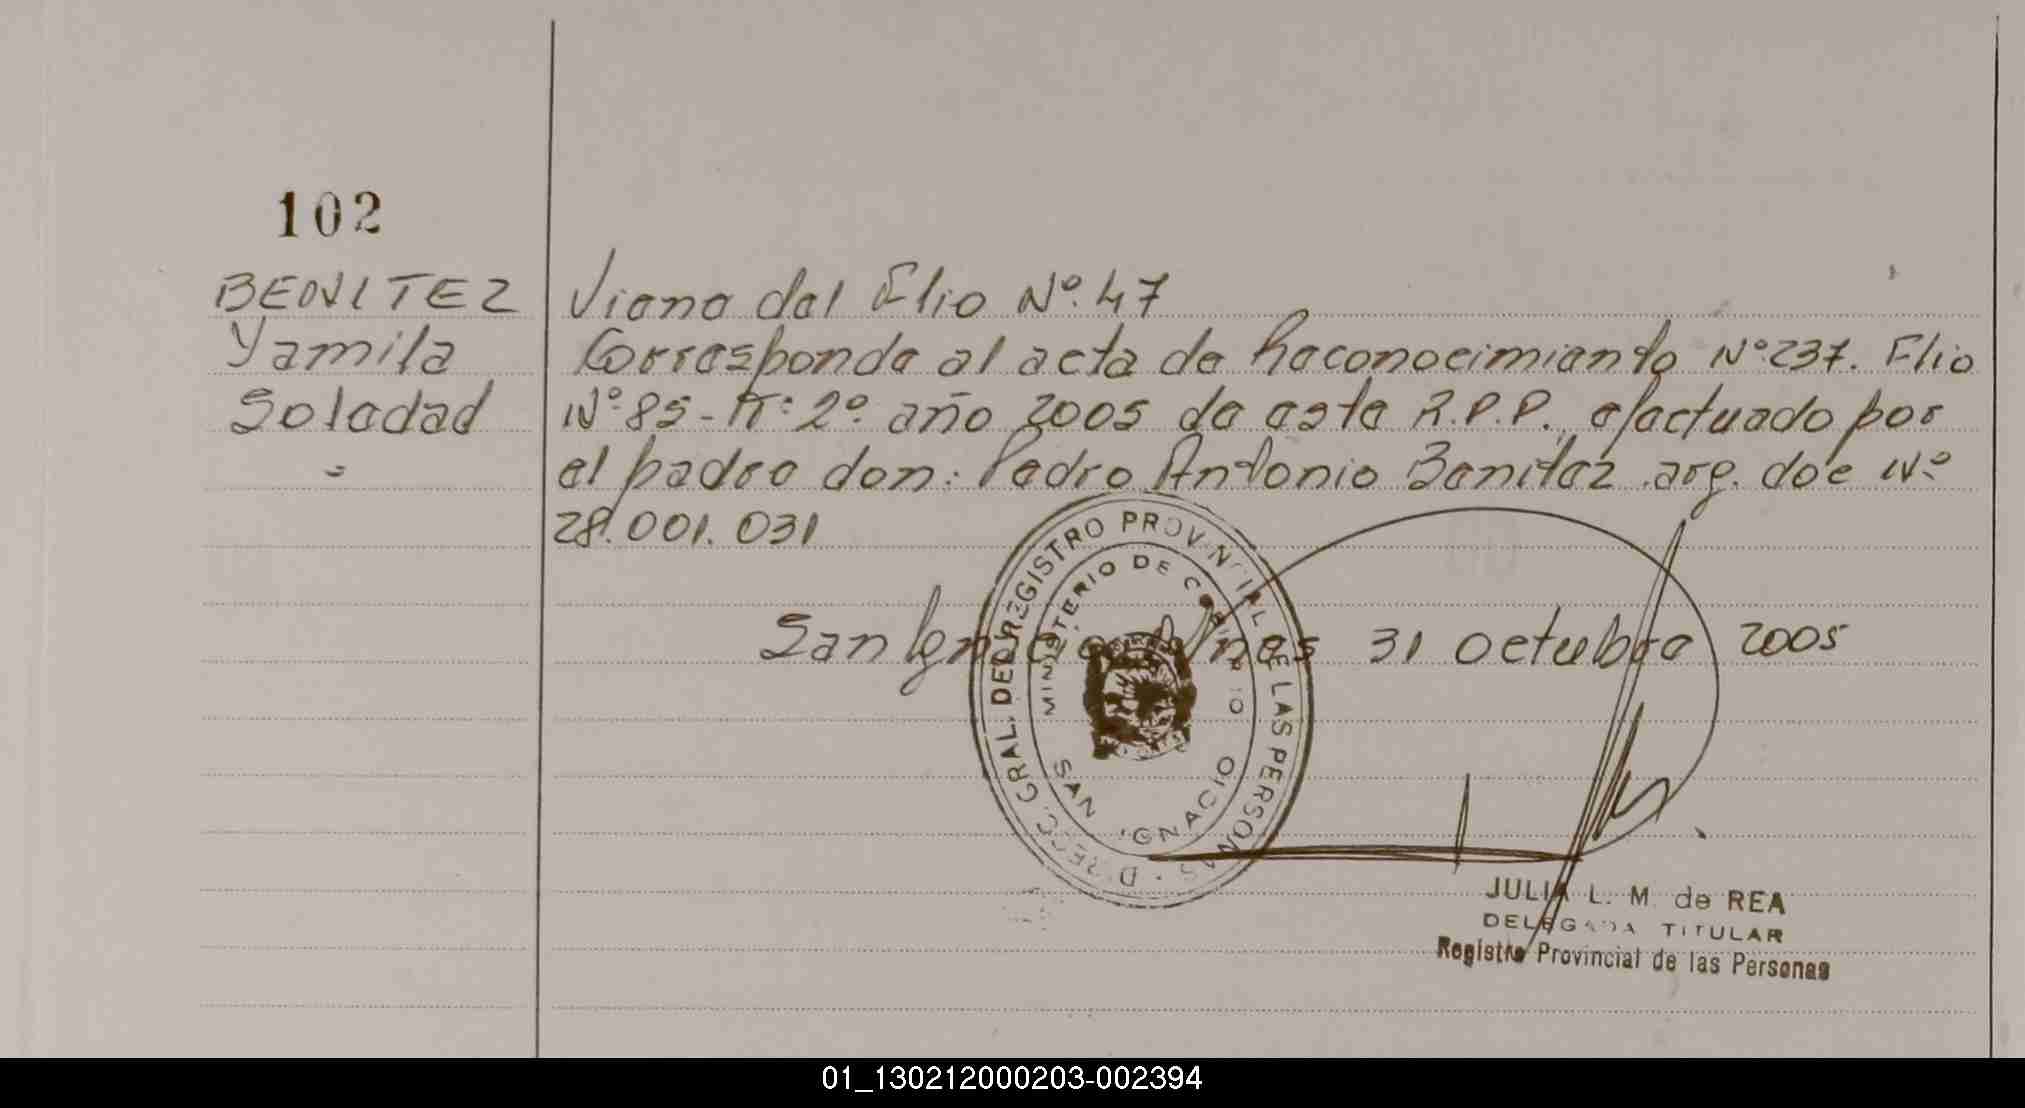 102
BENITEZ
Yamila
Soledad
Viene del Flio Nº 47
Corresponde al acta de Reconocimiento Nº 237. Flio
Nº 85 - Tº: 2º. año 2005 de este R.P.P. efactuado por
el padre don: Pedro Antonio Benitez. arg. doc Nº
28.001.031
San Ignacio, Mnes 31 octubre 2005
DIRECC. GRAL. DEL REGISTRO PROVINCIAL DE LAS PERSONAS
MINISTERIO DE GOBIERNO
SAN IGNACIO
JULIA L. M. de REA
DELEGADA TITULAR
Registro Provincial de las Personas
01_130212000203-002394